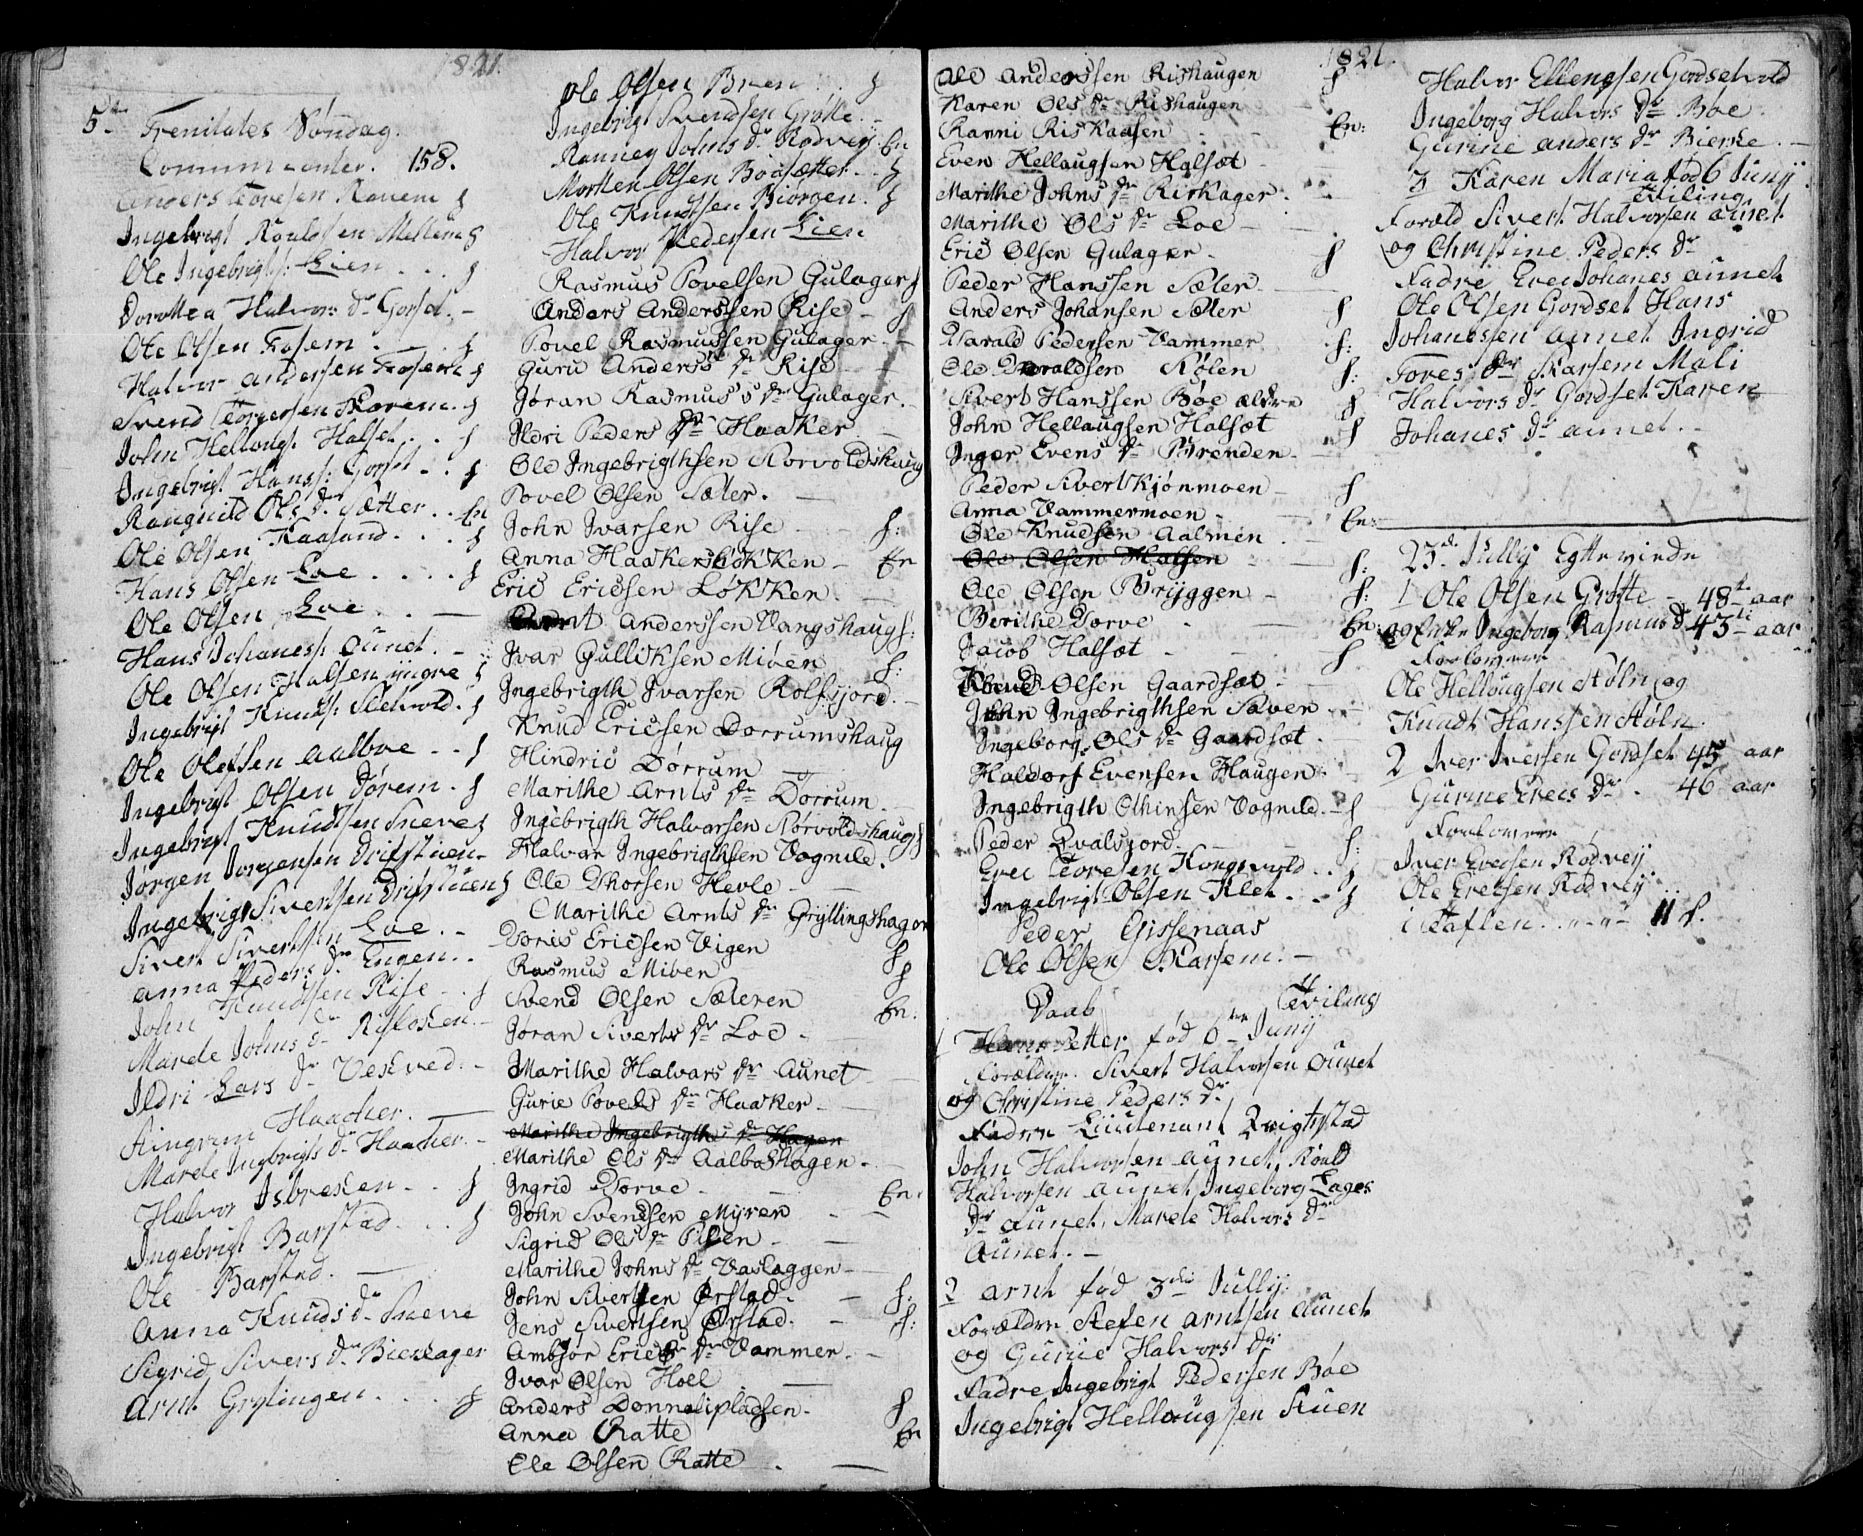 1821.
5te Trenitates Søndag.
Communicanter. 158.
Anders Toresen Ranem f
Ingebrigt Roaldsen Mellem f
Ole Ingebrigts: Lien . . . f
Dorottea Halvors dr Gorset. -
Ole Olsen Fosem . . f
Halvor Andersen Fosem f
Svend Torgersen Skarem. f
John Hellougs: Halset . . f
Ingebrigt Hanss: Gorset . . f
Raugnild Ols dr Sætter . . En
Ole Olsen Kaasand . . . f
Hans Olsen Loe . . . . f
Ole Olsen Loe . . —
Hans Johaness: Ounet. -
Ole Olsen Halsen yngre f
Ingebrigt Knuds: Sletvold. f
Ole Olefsen Aalboe . . f
Ingebrigt Olsen Dørem . f
Ingebrigt Knudsen Sneve f
Jørgen Jørgensen Drifstuen -
Ingebrigt Sivertsen Drifstuen f
Sivert Sivertsen Loe. -
Anna Peders dr Engen . .
John Knudsen Rise . . f
Marele Johns dr Risloken. -
Ildri Lars dr Vesved. -
Haacher. —
Marele Ingbrigts dr Haacher. -
Halvor Isbreken . . f
Ingebrigt Barstad . . . f
Ole Barstad. —
Anna Knuds dr Sneve
Sigrid Sivers dr Bierkager
Arnt Grytingen . . . f
Ole Olsen Bren . . . f
Ingebrigt Svendsen Grøtte. -
Ranney Johns dr Rodvey: En
Morten Olsen Boesætter. . f
Ole Knudsen Biørgen. f
Halvor Pedersen Lien
Rasmus Povelsen Gulager f
Anders Anderssen Rise - f
Povel Rasmussen Gulager. -
Guru Anders's dr Rise -
Jøran Rasmus's dr Gulager. -
Ildri Peders dr Haaker —
Ole Ingebrigthsen Norvoldshaug
Povel Olsen Sæter. —
John Ivarsen Rise - - f:
Anna Haakersløkken - En
Eric Ericsen Løkken. —
Arnt Anderssen Vangshaug f:
Ivar Gulliksen Miøen f:
Ingebrigth Ivarsen Rolfsjord. -
Knud Ericsen Dorrumshaug
Hindric Dørrum —
Marithe Arnts dr Dørrum.
Ingebrigth Halvarsen Nørvoldshaug f
Halvar Ingebrigthsen Vognild.
Ole Thorsen Hevle - —
Marithe Arnts dr Gryttingshagen
Doris Ericsen Vigen f
Rasmus Miøen f
Svend Olsen Sæteren En:
Jøran Siverts dr Loe -
Marithe Halvars dr Aunet —
Gurie Povels dr Haaker - —
Marithe Ingebrigths dr Hagen
Marithe Ols dr Aalboshagen - —
Ingrid Dorve - — En:
John Svendsen Myren - —
Sigrid Ols dr Pisen - —
Marithe Johns dr Vaslaggen —
John Sivertsen Ørstad. - f:
Jens Sivertsen Ørstad. - f:
Ambjør Erics dr Vammer. -
Ivar Olsen Hoel . —
Anders Donnalipladsen. f
Anna Ratte En
Ole Olsen Ratte . —
1821.
Ole Anderssen Rishaugen f
Karen Ols dr Rishaugen —
Ranni Riskaasen - - En:
Even Hellaugsen Halsæt -
Marithe Johns dr Birkager. -
Marithe Ols dr Loe - - .
Eric Olsen Gulager. f
Peder Hanssen Sæter. —
Anders Johansen Sæter f
Harald Pedersen Vammer f:
Ole Haraldsen Kølen f:
Sivert Hanssen Bøe ældre f
John Hellaugsen Halsæt f
Inger Evens dr Brenden. —
Peder Sivert Kjønmoen - f
Anna Vammermoen . — En:
Ole Knudsen Aalmen . —
Ole Olsen Halsen - f:
Ole Olsen Bryggen - f:
Berithe Dorve - En:
Jacob Halsæt - - f.
Knud Olsen Gaardsæt -
John Ingebrigthsen Sæven -
Ingeborg Ols dr Gaardsæt .
Haldorf Evensen Haugen. -
Ingebrigth Olhinsen Vognild. - f
Peder Qvalsjord. - f:
Erec Toresen Kongsvold . . f
Ingebrigt Olsen Klet . . f
Peder Gissenaas
Ole Olsen Skarsem. -
Daab Tviling
1 Hans Petter fød 6te Juny
Forældre. Sivert Halvorsen Ounet
og Christine Peders dr
Fadre Liutenant Qvigstad
John Halvorsen Aunet, Roald
Halvorsen Aunet, Ingeborg Lages
dr Aunet, Marele Halvors dr
Aunet. -
2 Arnt fød 3die Jully:
Forældre Stefen Arntsen Aunet
og Gurine Halvors dr
Fadre Ingebrigt Pedersen Bøe
Ingebrigt Hellougsen Stuen
Halvor Ellengsen Gordsetvold
Ingeborg Halvors dr Bøe
Gurine Anders dr Bierke. -
3 Karen Maria fød 6 Juny
Tviling
Foræld Sivert Halvorsen Aunet
og Christine Peders dr
Fadre Erec Johanes Aunet
Ole Olsen Gordset Hans
Johanessen Aunet Ingrid
Tores dr Skarsem Mali
Halvors dr Gordset Karen
Johanes dr Aunet. -
23de Jully Egteviede
1 Ole Olsen Grøtte - 48te aar
og Enke Ingeborg Rasmus d 43ti aar
Forlovere
Ole Hellougsen Støln og
Knudt Hanssen Støln.
2 Iver Iversen Gordset 45 aar
Gurine Erecs dr . 46 aar
Forlovere
Iver Erecsen Rodvey
Ole Erecsen Rodvey
i Taflen . . - - - 11 f.